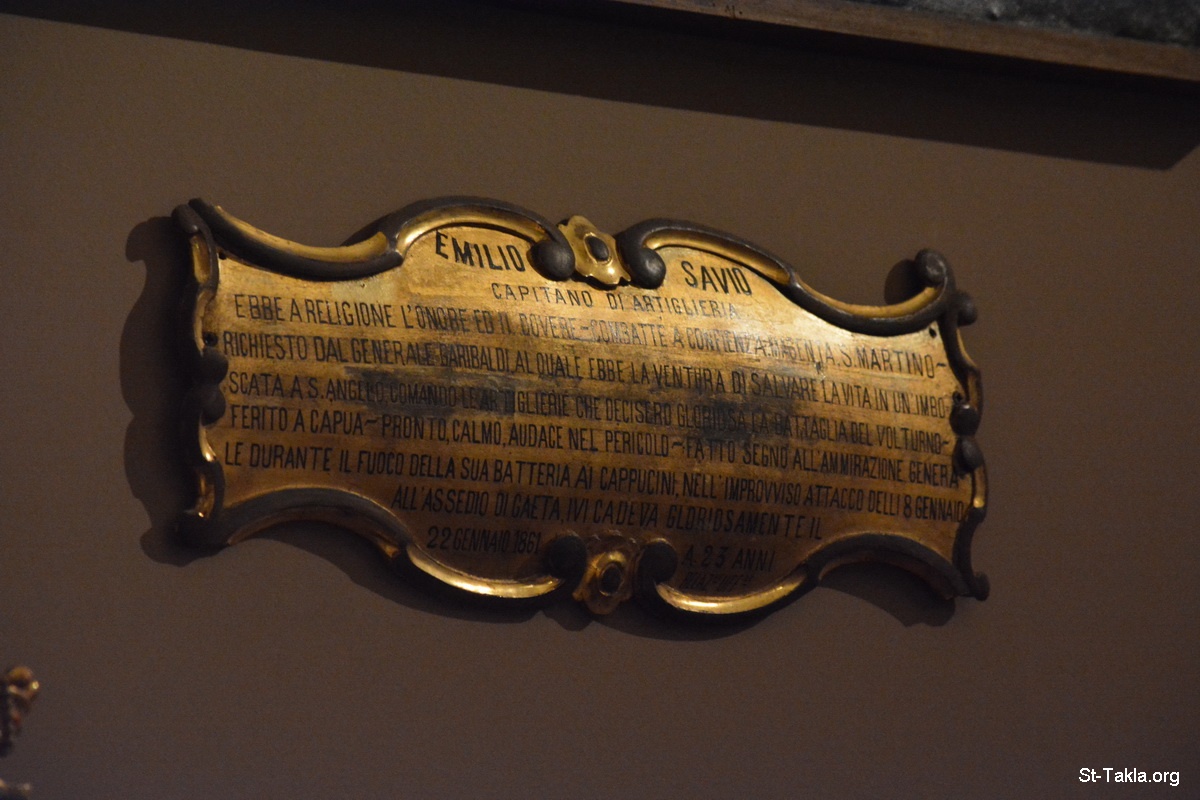 EMILIO SAVIO
CAPITANO DI ARTIGLIERIA
EBBE A RELIGIONE L'ONORE ED IL DOVERE – COMBATTE A CONFIENZA, MAGENTA, S. MARTINO –
RICHIESTO DAL GENERALE GARIBALDI, AL QUALE EBBE LA VENTURA DI SALVARE LA VITA IN UN'IMBO-
SCATA A S. ANGELO, COMANDO LE ARTIGLIERIE CHE DECISERO GLORIOSA LA BATTAGLIA DEL VOLTURNO –
FERITO A CAPUA – PRONTO, CALMO, AUDACE NEL PERICOLO – FATTO SEGNO ALL'AMMIRAZIONE GENERA-
LE DURANTE IL FUOCO DELLA SUA BATTERIA AI CAPPUCINI, NELL'IMPROVVISO ATTACCO DELLI 8 GENNAIO
ALL'ASSEDIO DI GAETA, IVI CADEVA GLORIOSAMENTE IL
22 GENNAIO 1861 A 23 ANNI
St-Takla.org